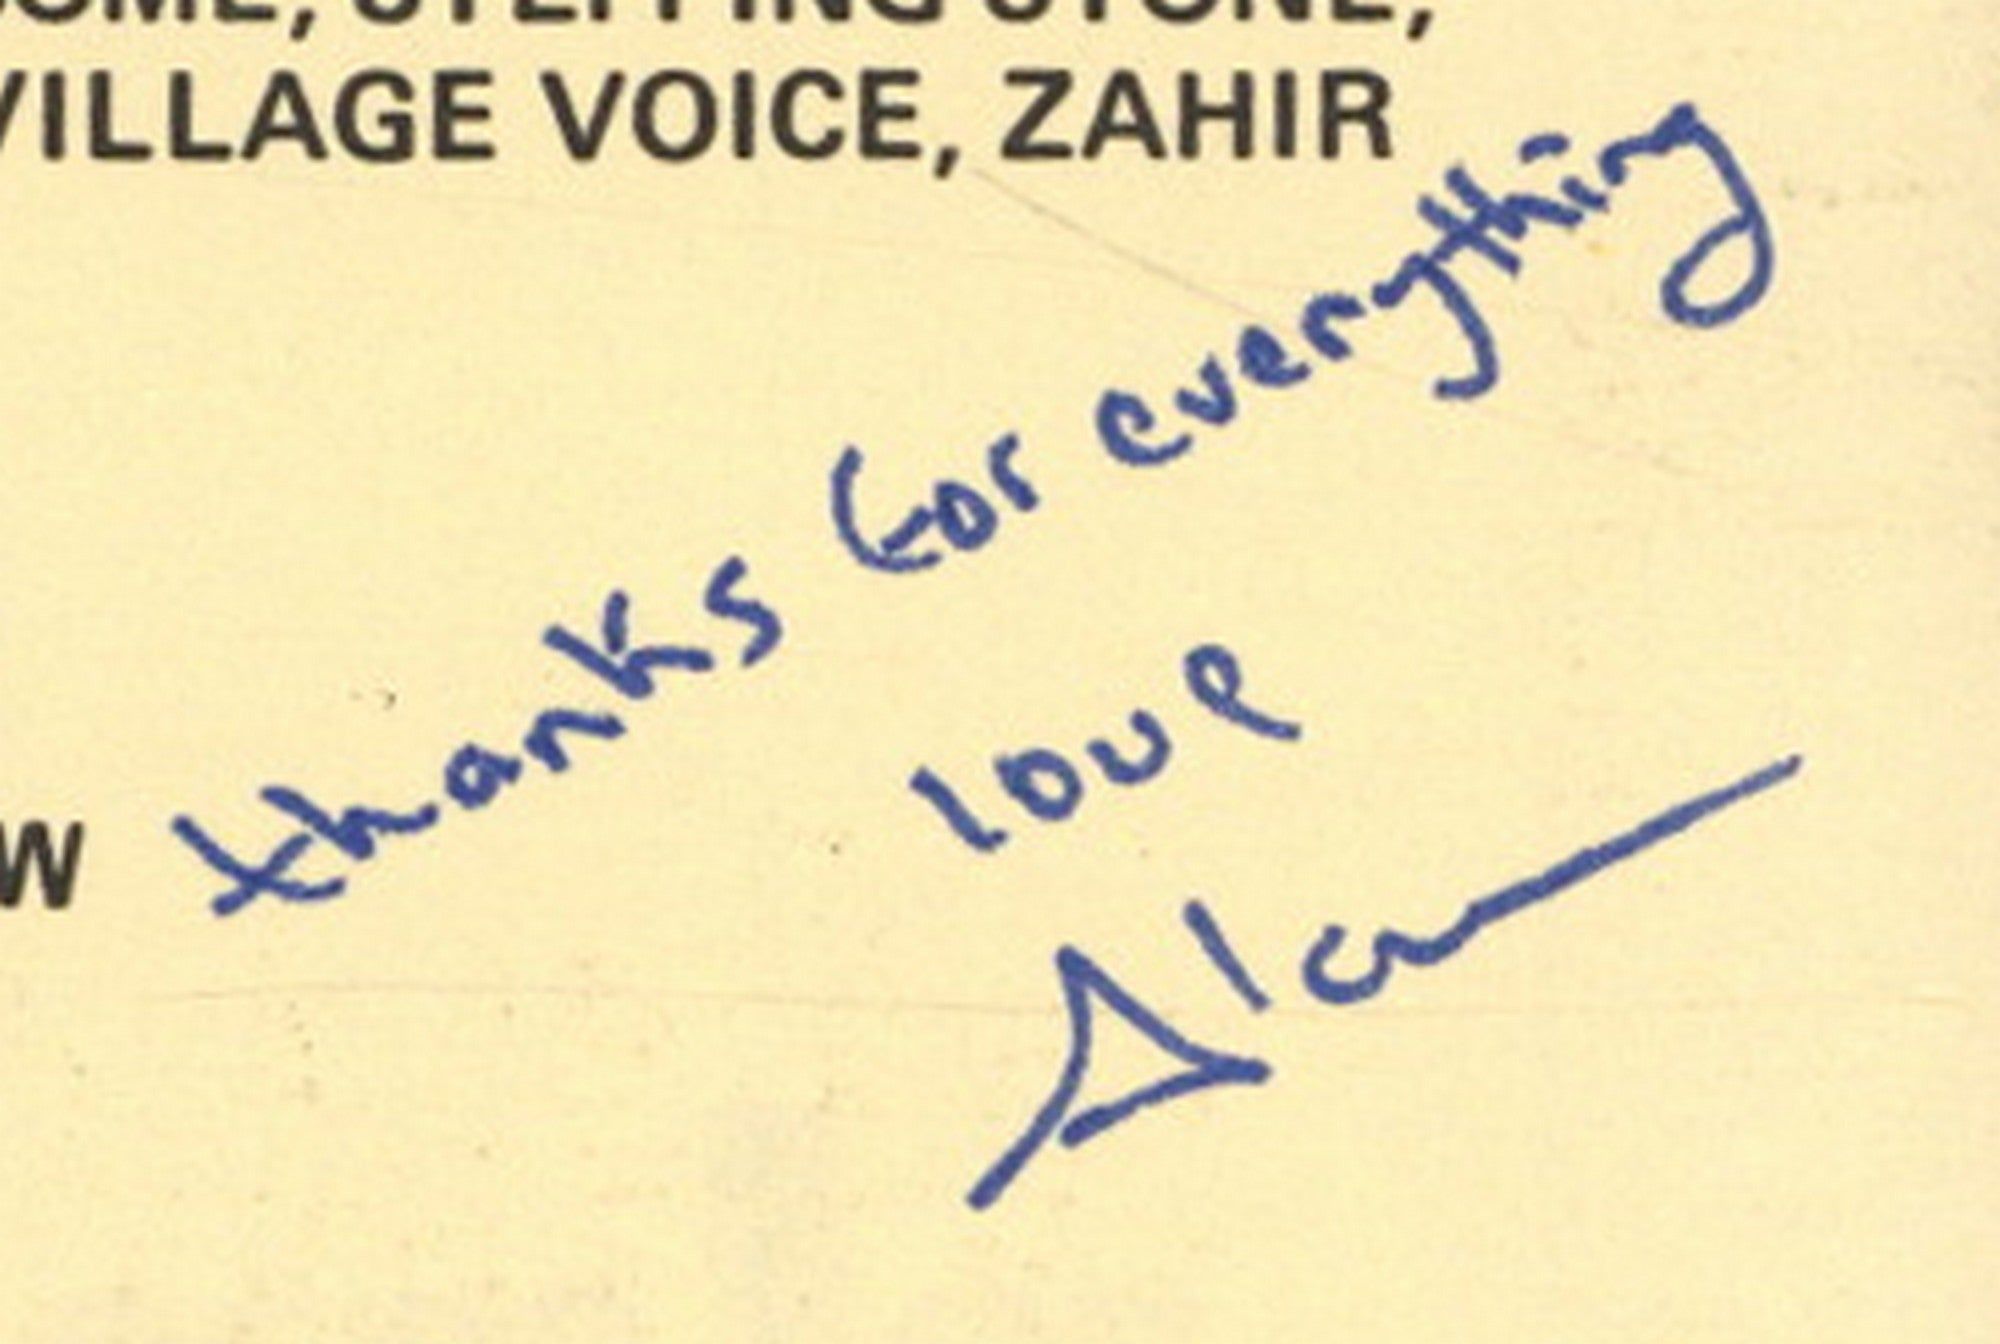 OME, STEPPING STONE,
VILLAGE VOICE, ZAHIR
W
thanks for everything
love
Alan